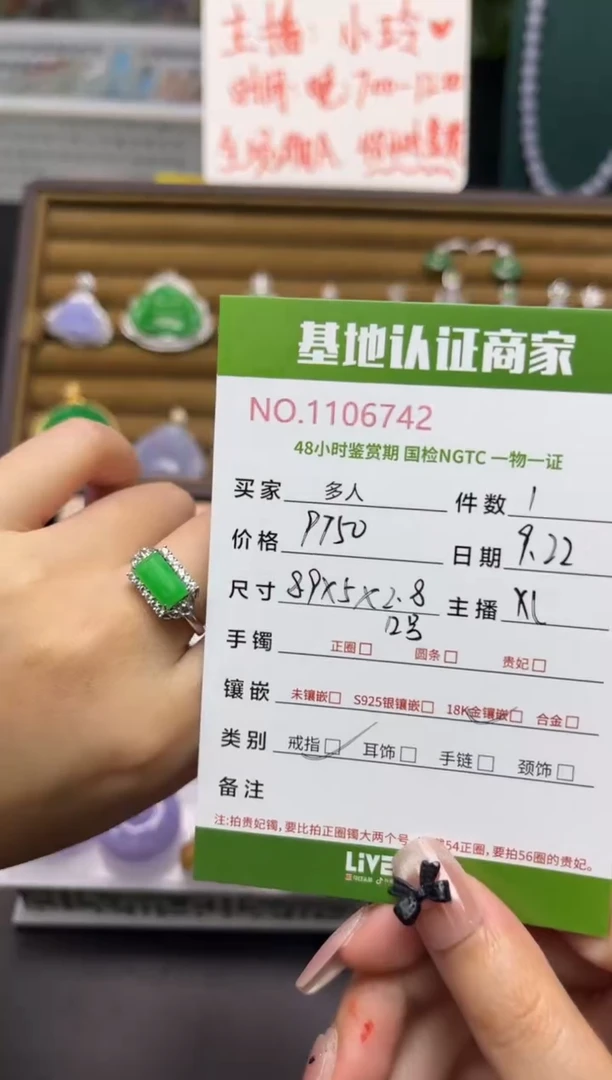 主播: 小玲
基地认证商家
NO.1106742
48小时鉴赏期 国检NGTC 一物一证
买家 多人 件数 1
价格 P750 日期 9.22
尺寸 89×5×2.8 主播 XL
12号
手镯 正圈□ 圆条□ 贵妃□
镶嵌 未镶嵌□ S925银镶嵌□ 18K金镶嵌□ 合金□
类别 戒指□ 耳饰□ 手链□ 颈饰□
备注
注:拍贵妃镯,要比拍正圈镯大两个号, 54正圈,要拍56圈的贵妃。
LIVE